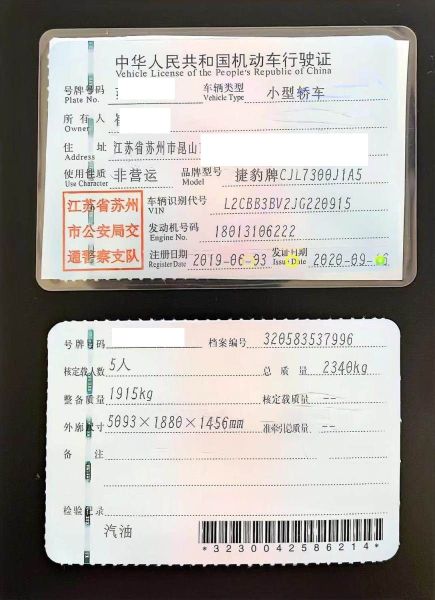 中华人民共和国机动车行驶证
Vehicle License of the People's Republic of China
号牌号码 车辆类型 小型轿车
Plate No. Vehicle Type
所有人
Owner
住址 江苏省苏州市昆山
Address
使用性质 非营运 品牌型号 捷豹牌CJL7300J1A5
Use Character Model
江苏省苏州 车辆识别代号 L2CBB3BV2JG220915
VIN
市公安局交 发动机号码 18013106222
Engine No.
通警察支队 注册日期 2019-06-03 发证日期 2020-09-
Register Date Issue Date
号牌号码 档案编号 320583537996
核定载人数 5人 总质量 2340kg
整备质量 1915kg 核定载质量 --
外廓尺寸 5093×1880×1456mm 准牵引总质量 --
备注
检验记录
汽油
*3230042586214*